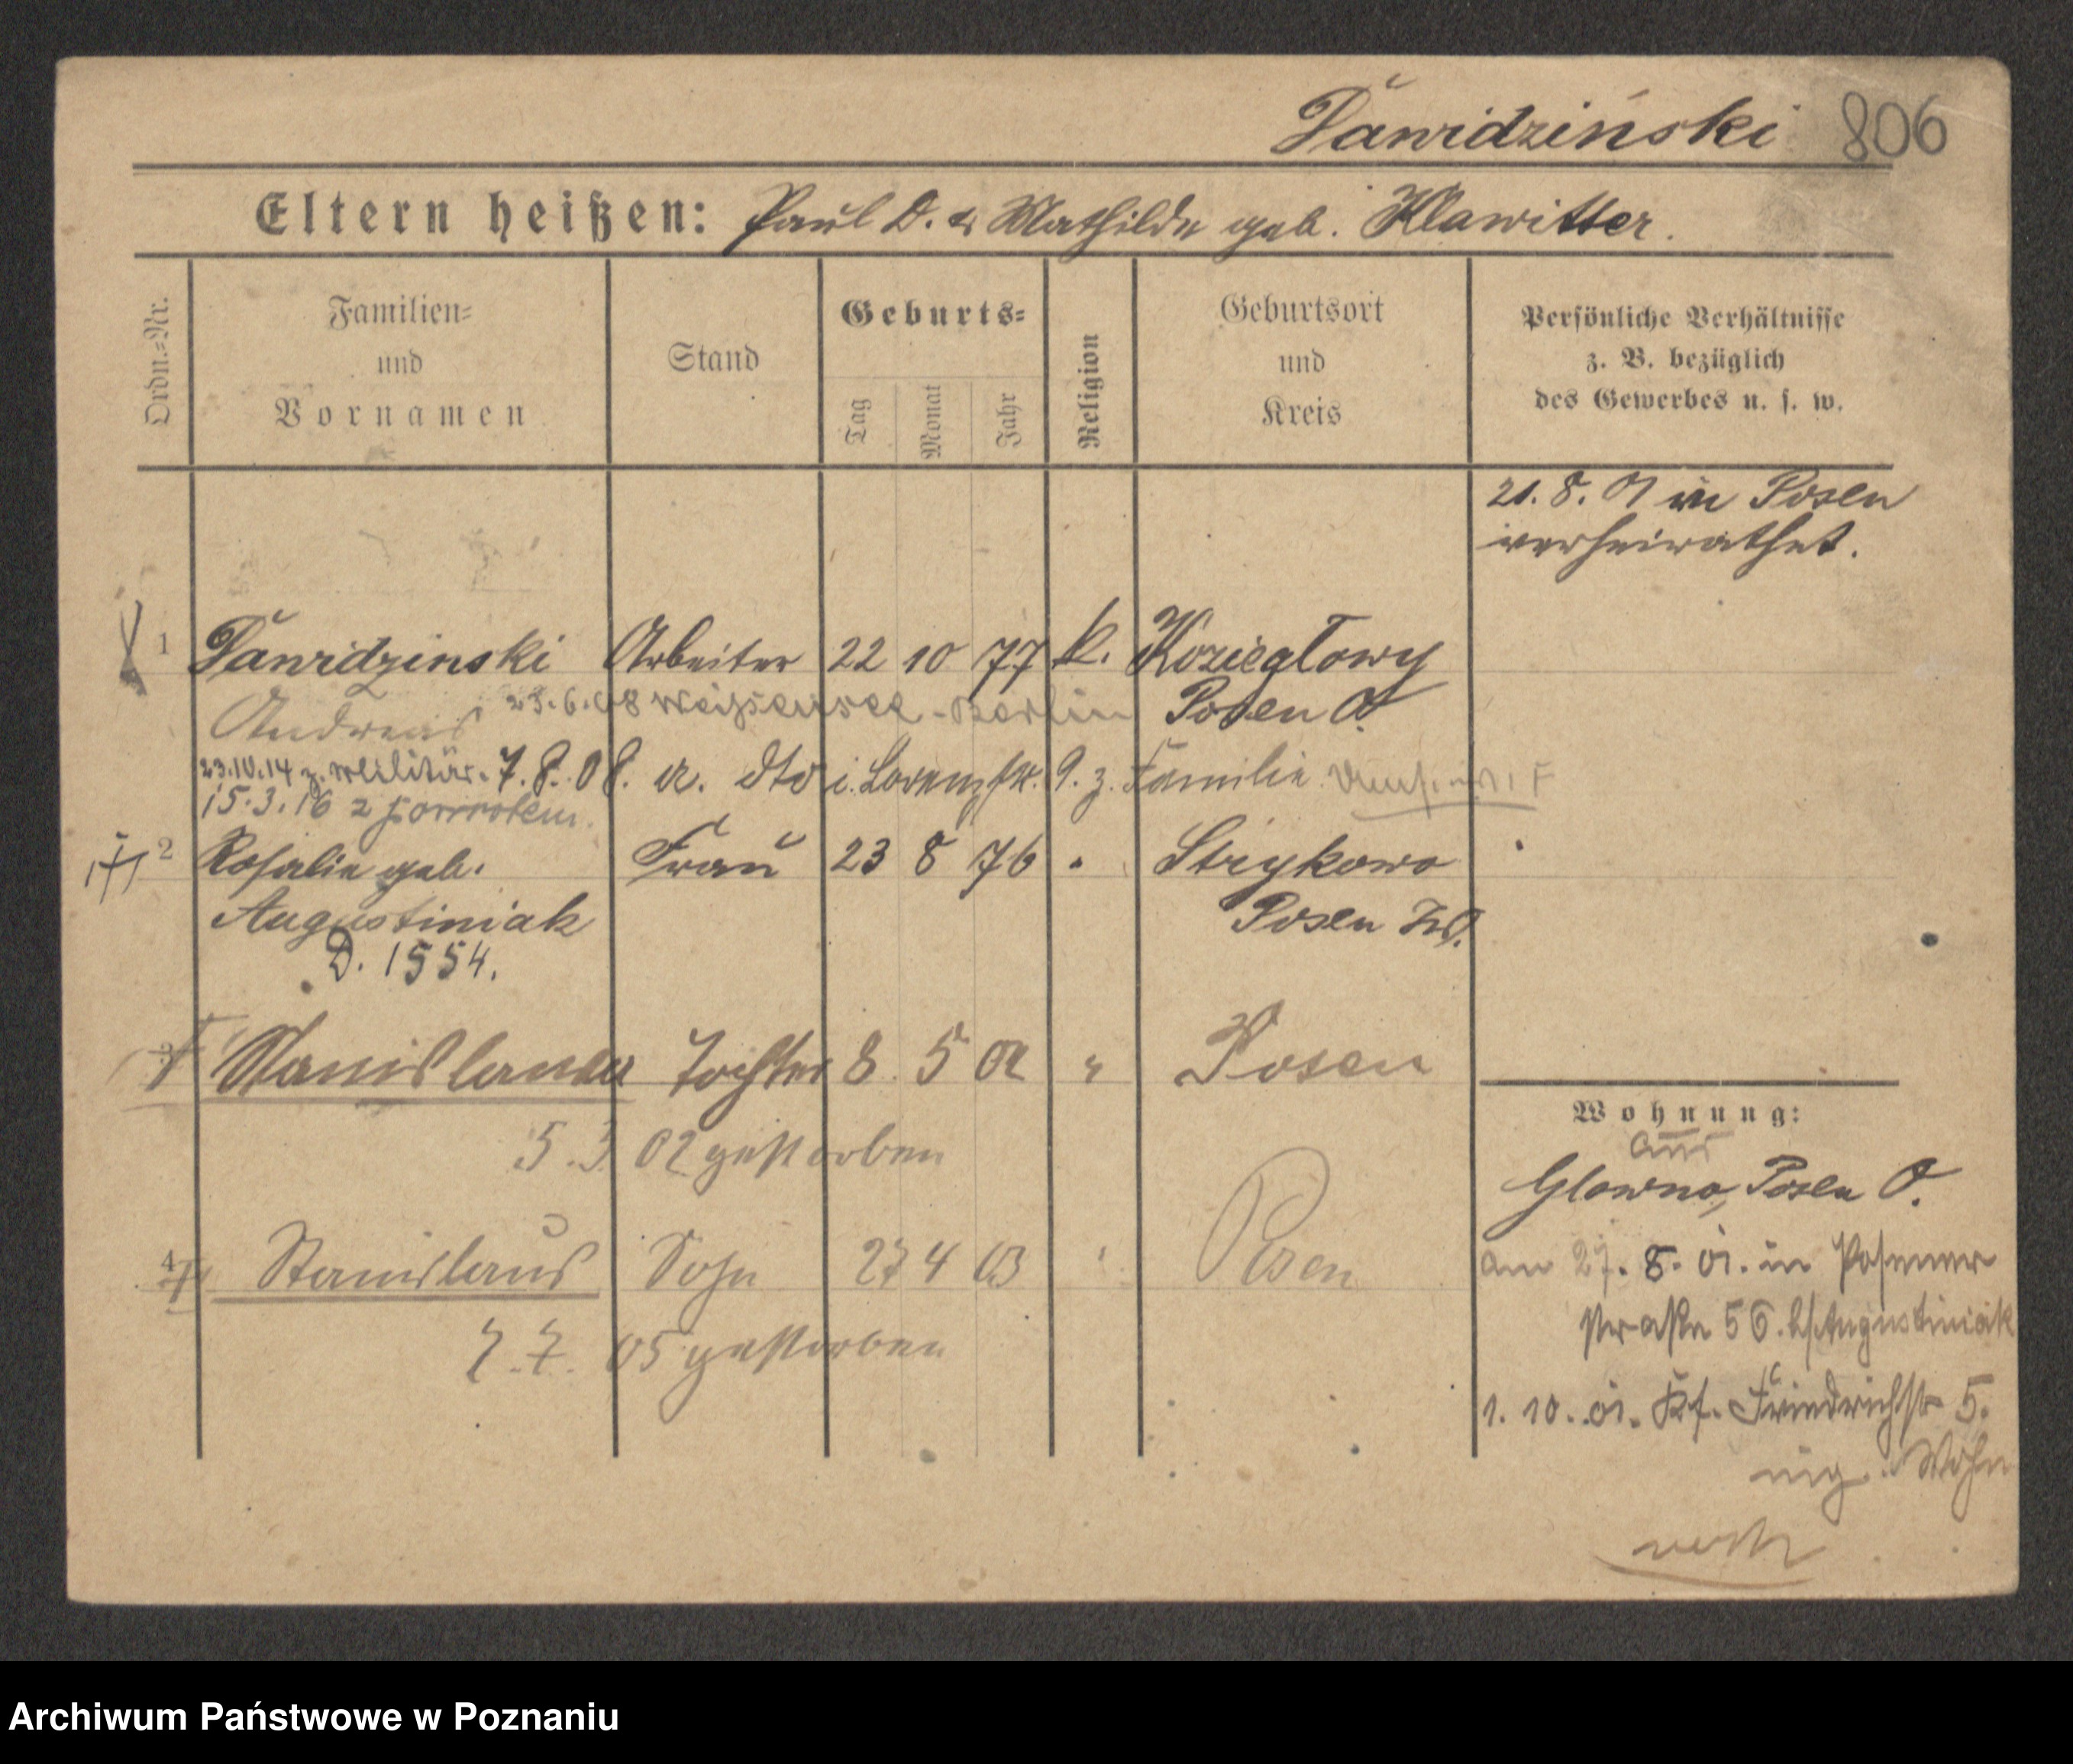 Dawidziński 806
Eltern heißen: Paul D. & Mathilde geb. Klawitter.
Ordn.-Nr.
Familien-
und
Vornamen
Stand
Geburts-
Tag
Monat
Jahr
Religion
Geburtsort
und
Kreis
Persönliche Verhältnisse
z. B. bezüglich
des Gewerbes u. s. w.
21. 8. 01 in Posen
verheirathet.
1 Dawidzinski Arbeiter 22 10 77 k. Koziegłowy
Andreas 23.6.08 Weißensee-Berlin Posen O.
23.10.14 z. Militär. 7. 8. 08. a. dto i. Lorenzstr. 9. z. Familie
15.3.16
2 Rosalie geb. Frau 23 8 76 " Strykowo
Augustiniak Posen W.
D. 1554.
3 Stanislawa Tochter 8 5 02 " Posen
5. 3 02 gestorben
4 Stanislaus Sohn 27 4 03 " Posen
7. 7. 05 gestorben
Wohnung:
aus
Glowno, Posen O.
am 27. 8. 01. in Posener
straße 56. b/Augustiniak
1. 10. 01. Friedrichstr 5.
Archiwum Państwowe w Poznaniu